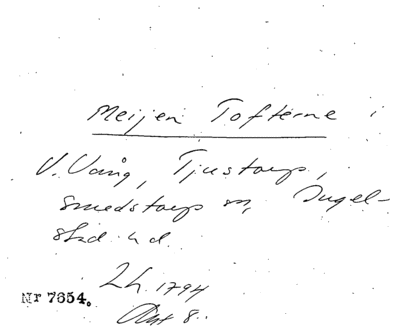 Meijeri Tofterne i
V. Vång, Tjustorp,
Smedstorps sn, Ingel-
stad hd.
Lh. 1794
Akt 8.
Nr 7654.